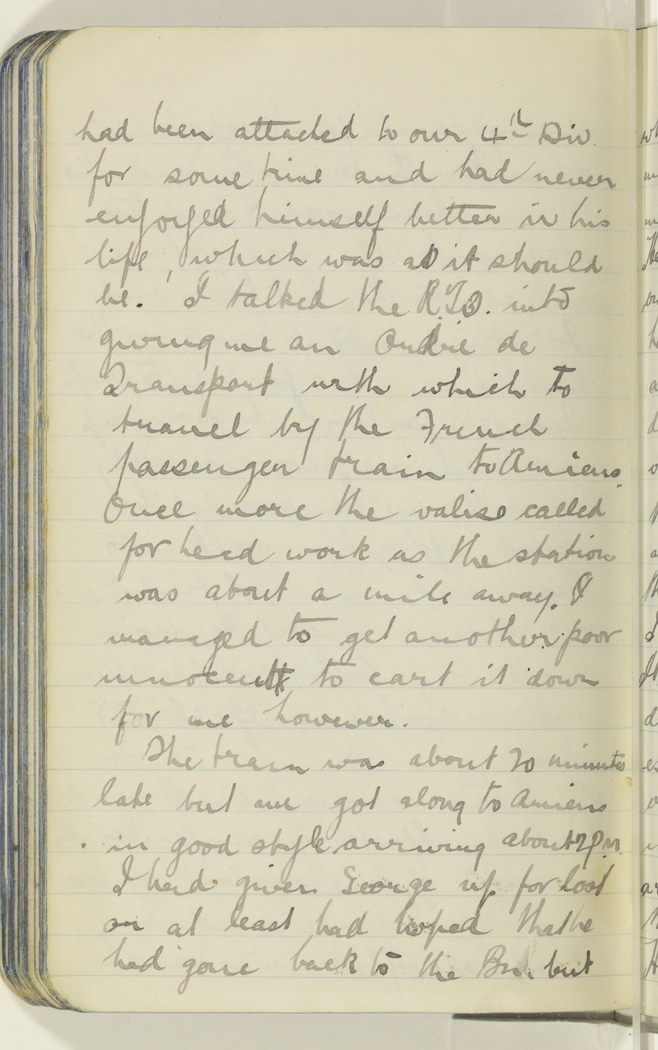 had been attached to our 4th Div
for some time and had never
enjoyed himself better in his
life, which was as it should
be. I talked the R.T.O. into
giving me an Ordre de
Transport with which to
travel by the French
passenger train to Amiens.
Once more the valise called
for head work as the station
was about a mile away. I
managed to get another poor
innocent to cart it down
for me however.
The train was about 20 minutes
late but we got along to Amiens
in good style arriving about 2 P.M.
I had given George up for lost
or at least had hoped that he
had gone back to the Bn. but